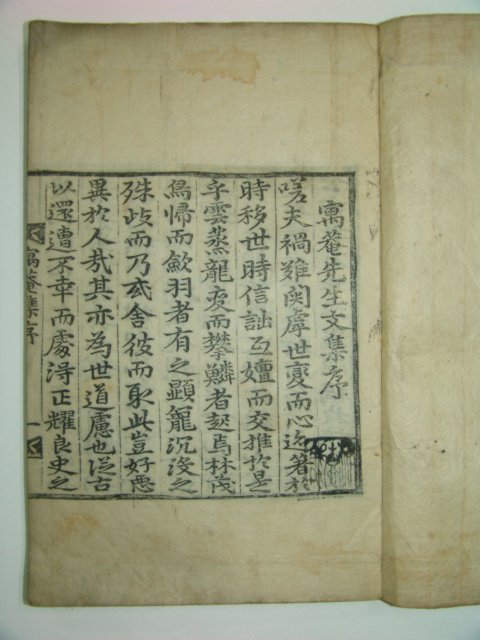 寓菴先生文集序
嗟夫禍難関虖世變而心迹著於
時移世時信詘互嬗而交推於是
乎雲蒸龍變而攀鱗者起焉林茂
鳥帰而歛羽者有之顯寵沉淪之
殊歧而乃或舍彼而取此豈好惡
異於人㢤其亦為世道慮也從古
以還遭不幸而處淂正耀良史之
寓菴集序
一